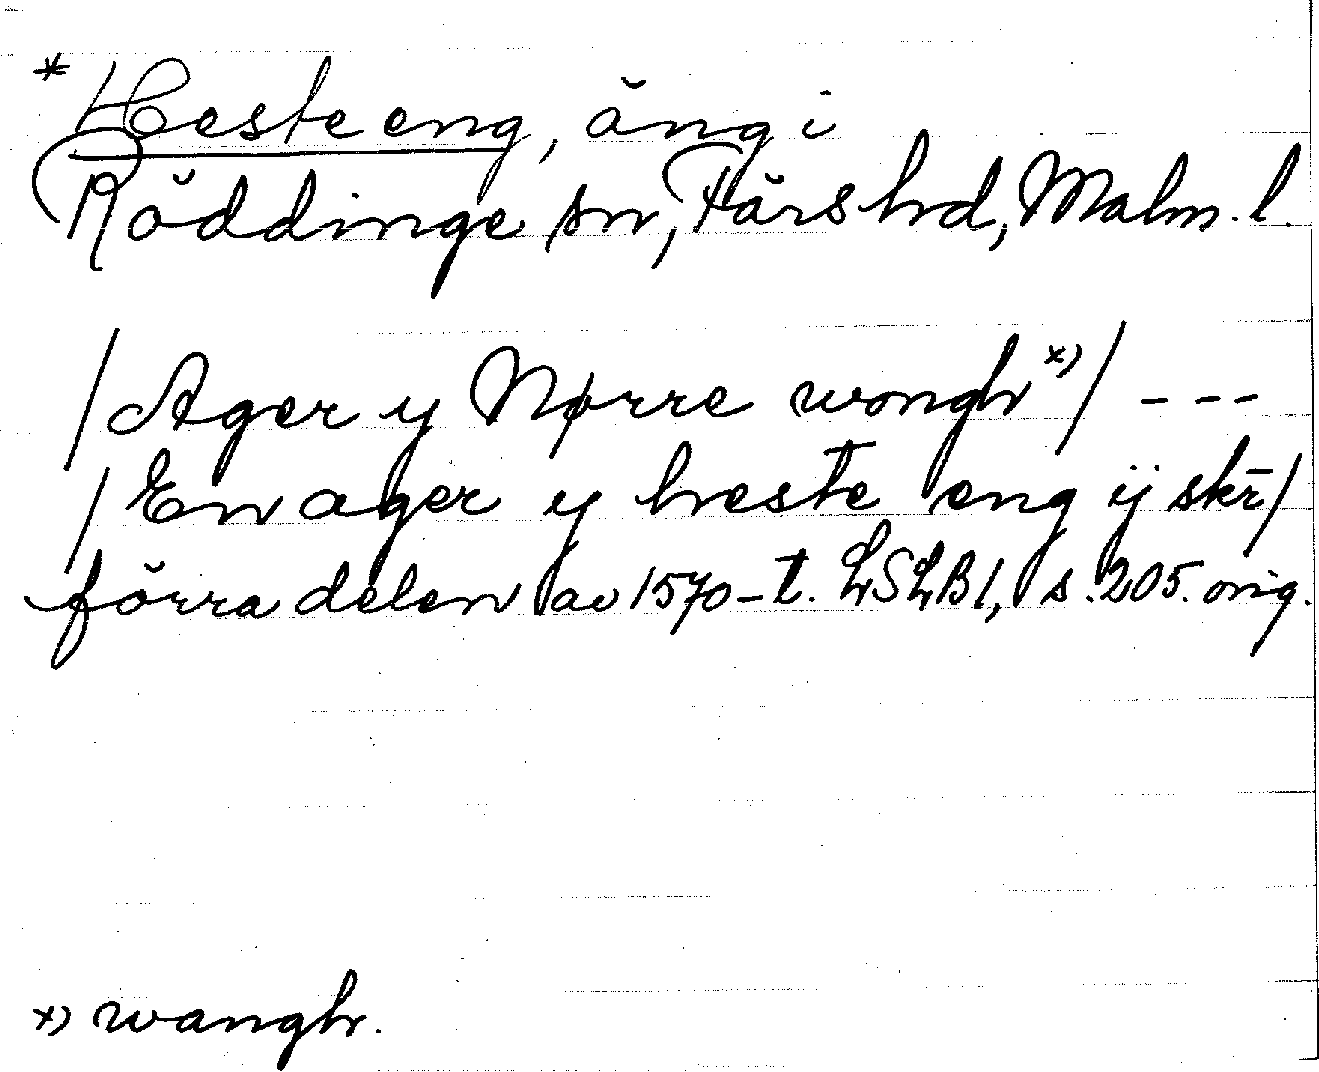 * Hesteeng, äng i
Röddinge sn, Färs hd, Malm. l.
/Ager y Nørre wongh *)/ ---
/En ager y heste eng ij skr̄/
förra delen av 1570-t. LSLB1, s. 205. orig.
*) wangh.